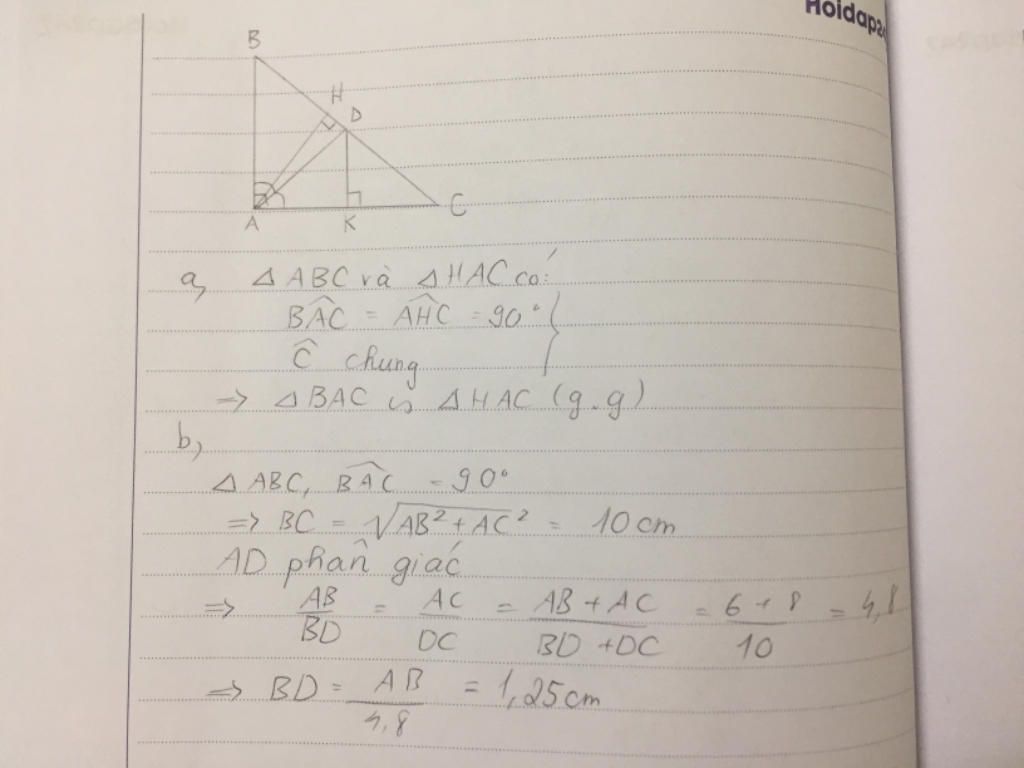 Hoidap247
B
H
D
A
K
C
a, △ABC và △HAC có:
BÂC = AĤC = 90°
Ĉ chung
=> △BAC ∽ △HAC (g.g)
b,
△ABC, BÂC = 90°
=> BC = √(AB² + AC²) = 10cm
AD phân giác
=> AB/BD = AC/DC = (AB + AC)/(BD + DC) = (6 + 8)/10 = 4,8
=> BD = AB/4,8 = 1,25cm